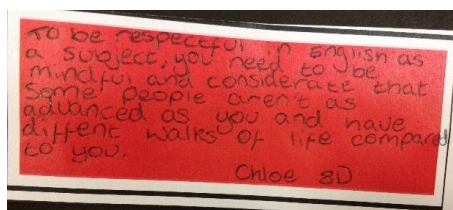 To be respectful in English as
a subject, you need to be
mindful and considerate that
some people aren't as
advanced as you and have
diffent walks of life compared
to you.
Chloe 8D